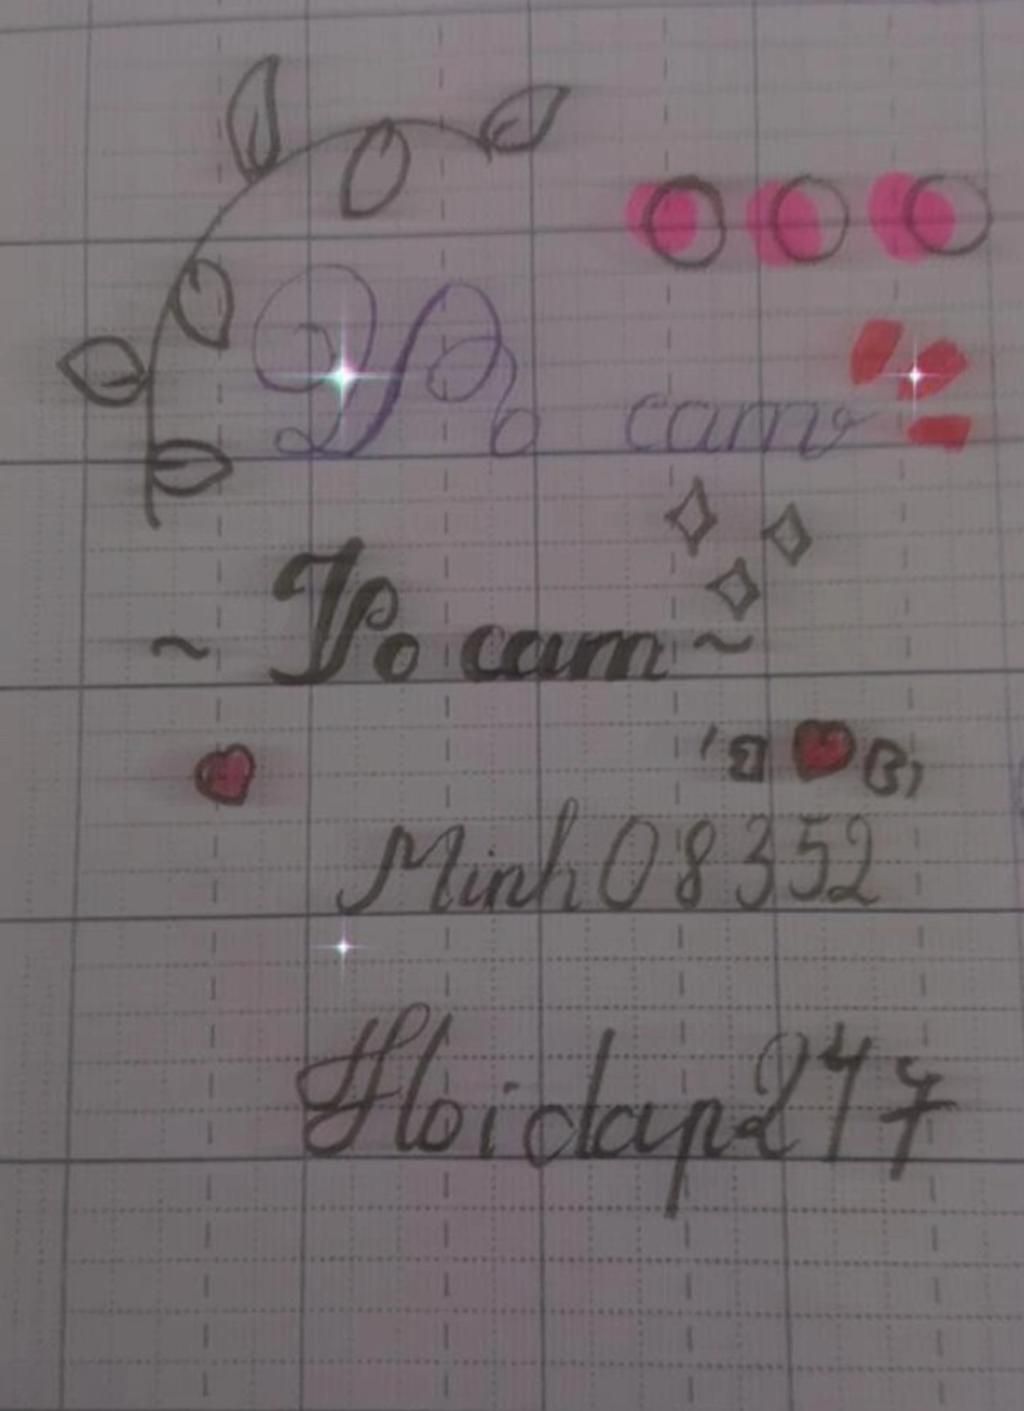 Vo cam
~ Vo cam ~
Minh08352
Hoidap247